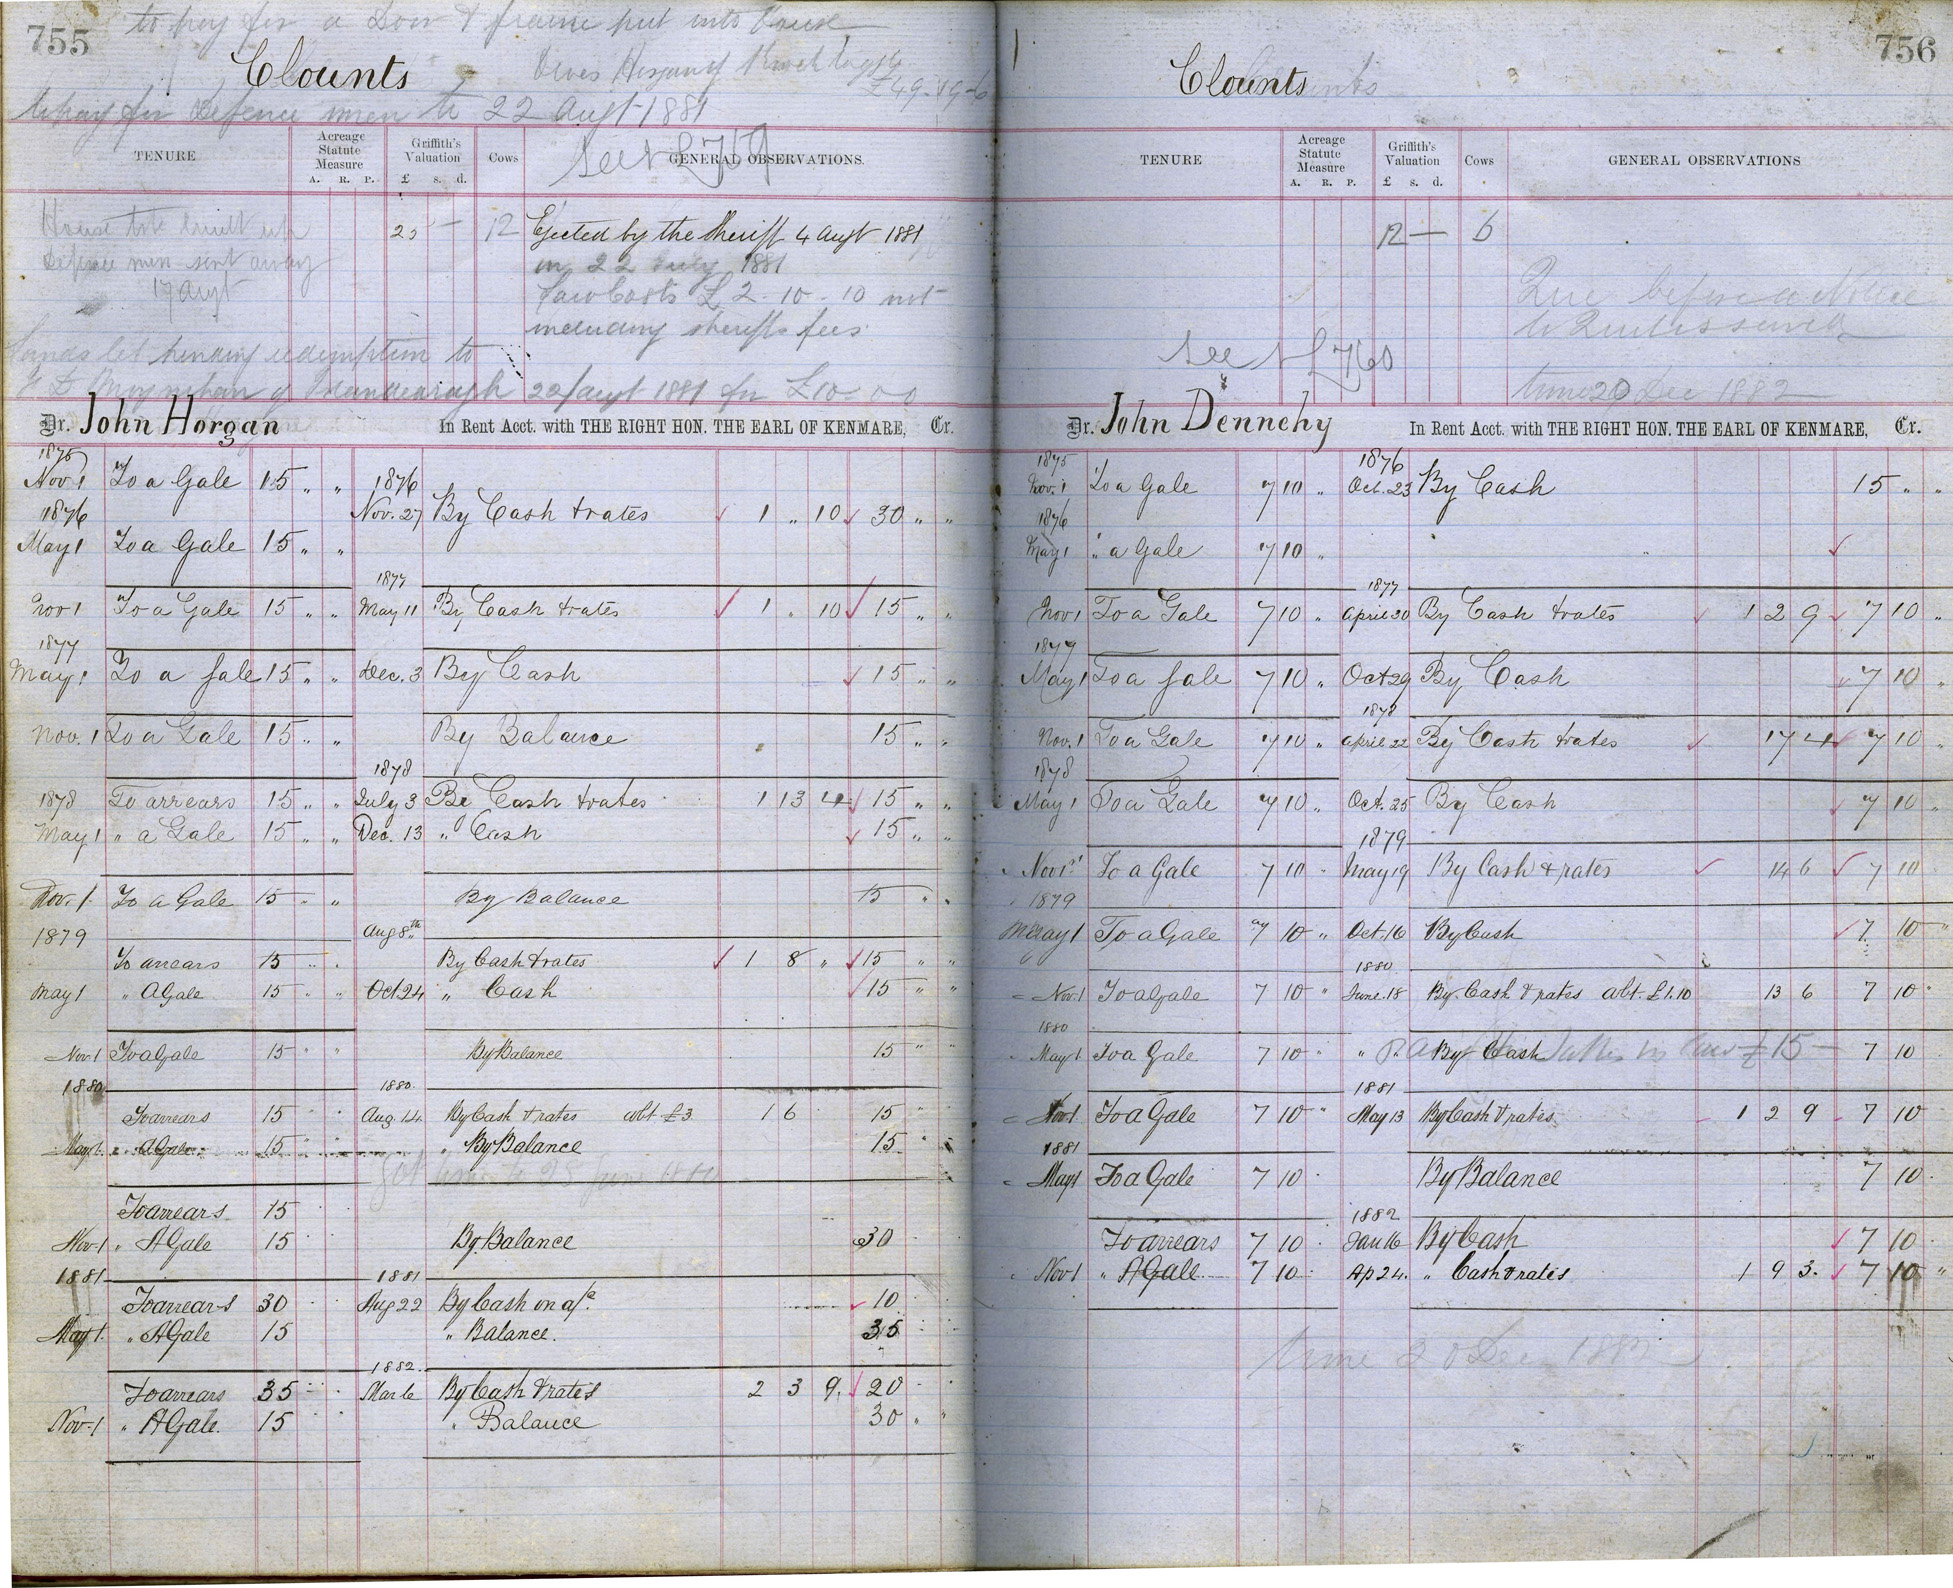 755
to pay for a Door & frame put into House
Clounts
£49-19-6
to pay for Defence men to 22 Augt 1881
TENURE
Acreage Statute Measure
A. R. P.
Griffith's Valuation
£ s. d.
Cows
GENERAL OBSERVATIONS.
See L 759
House to be built
Defence men sent away
17 Augt
25 — 12
Ejected by the Sheriff 4 Augt 1881
22 July 1881
Law Costs £2-10-10 not
including sheriffs fees
Lands let pending redemption to
22/Augt 1881 for £10-0-0
Dr. John Horgan In Rent Acct. with THE RIGHT HON. THE EARL OF KENMARE, Cr.
1875
Nov. 1 To a Gale 15 " " 1876
1876 Nov. 27 By Cash & rates 1 " 10 30 " "
May 1 To a Gale 15 " "
1877
Nov 1 To a Gale 15 " " May 11 By Cash & rates 1 " 10 15 " "
1877
May 1 To a Gale 15 " " Dec. 3 By Cash 15 " "
Nov. 1 To a Gale 15 " " By Balance 15 " "
1878
1878 To arrears 15 " " July 3 By Cash & rates 1 13 4 15 " "
May 1 " a Gale 15 " " Dec. 13 " Cash 15 " "
Nov. 1 To a Gale 15 " " By Balance 15 " "
1879 Aug 8th
To arrears 15 " " By Cash & rates 1 8 " 15 " "
May 1 " A Gale 15 " " Oct 24 " Cash 15 " "
Nov 1 To a Gale 15 " " By Balance 15 " "
1880 1880
To arrears 15 " " Aug. 14 By Cash & rates abt £3 1 6 15 "
May 1 " A Gale 15 " " " By Balance 15 "
To arrears 15
Nov. 1 " A Gale 15 By Balance 30
1881 1881
To arrears 30 Aug 22 By Cash on a/c 10
May 1 " A Gale 15 " Balance. 35
1882
To arrears 35 Mar 6 By Cash & rates 2 3 9 20
Nov. 1 " A Gale. 15 " Balance 30 " "
756
Clounts
TENURE
Acreage Statute Measure
A. R. P.
Griffith's Valuation
£ s. d.
Cows
GENERAL OBSERVATIONS
12 — 6
before a Notice
to Quit is served
See L 760
time 20 Dec 1882
Dr. John Dennehy In Rent Acct. with THE RIGHT HON. THE EARL OF KENMARE, Cr.
1875 1876
Nov. 1 To a Gale 7 10 " Oct. 23 By Cash 15 " "
1876
May 1 " a Gale 7 10 "
1877
Nov 1 To a Gale 7 10 " April 20 By Cash & rates 1 2 9 7 10 "
1877
May 1 To a Gale 7 10 " Oct 29 By Cash 7 10 "
1878
Nov. 1 To a Gale 7 10 " April 22 By Cash & rates 17 4 7 10 "
1878
May 1 To a Gale 7 10 " Oct. 25 By Cash 7 10 "
1879
Nov 1st To a Gale 7 10 " May 19 By Cash & rates 14 6 7 10
1879
May 1 To a Gale 7 10 " Oct. 16 By Cash 7 10 "
1880
Nov. 1 To a Gale 7 10 " June. 18 By Cash & rates abt. £1.10 13 6 7 10 "
1880
May 1 To a Gale 7 10 " " By Cash 7 10
£15
1881
Nov. 1 To a Gale 7 10 " May 13 By Cash & rates 1 2 9 7 10
1881
May 1 To a Gale 7 10 By Balance 7 10
1882
To arrears 7 10 Jan 16 By Cash 7 10
Nov 1 " A Gale 7 10 Ap 24. " Cash & rates 1 9 3. 7 10 "
time 20 Dec 1882